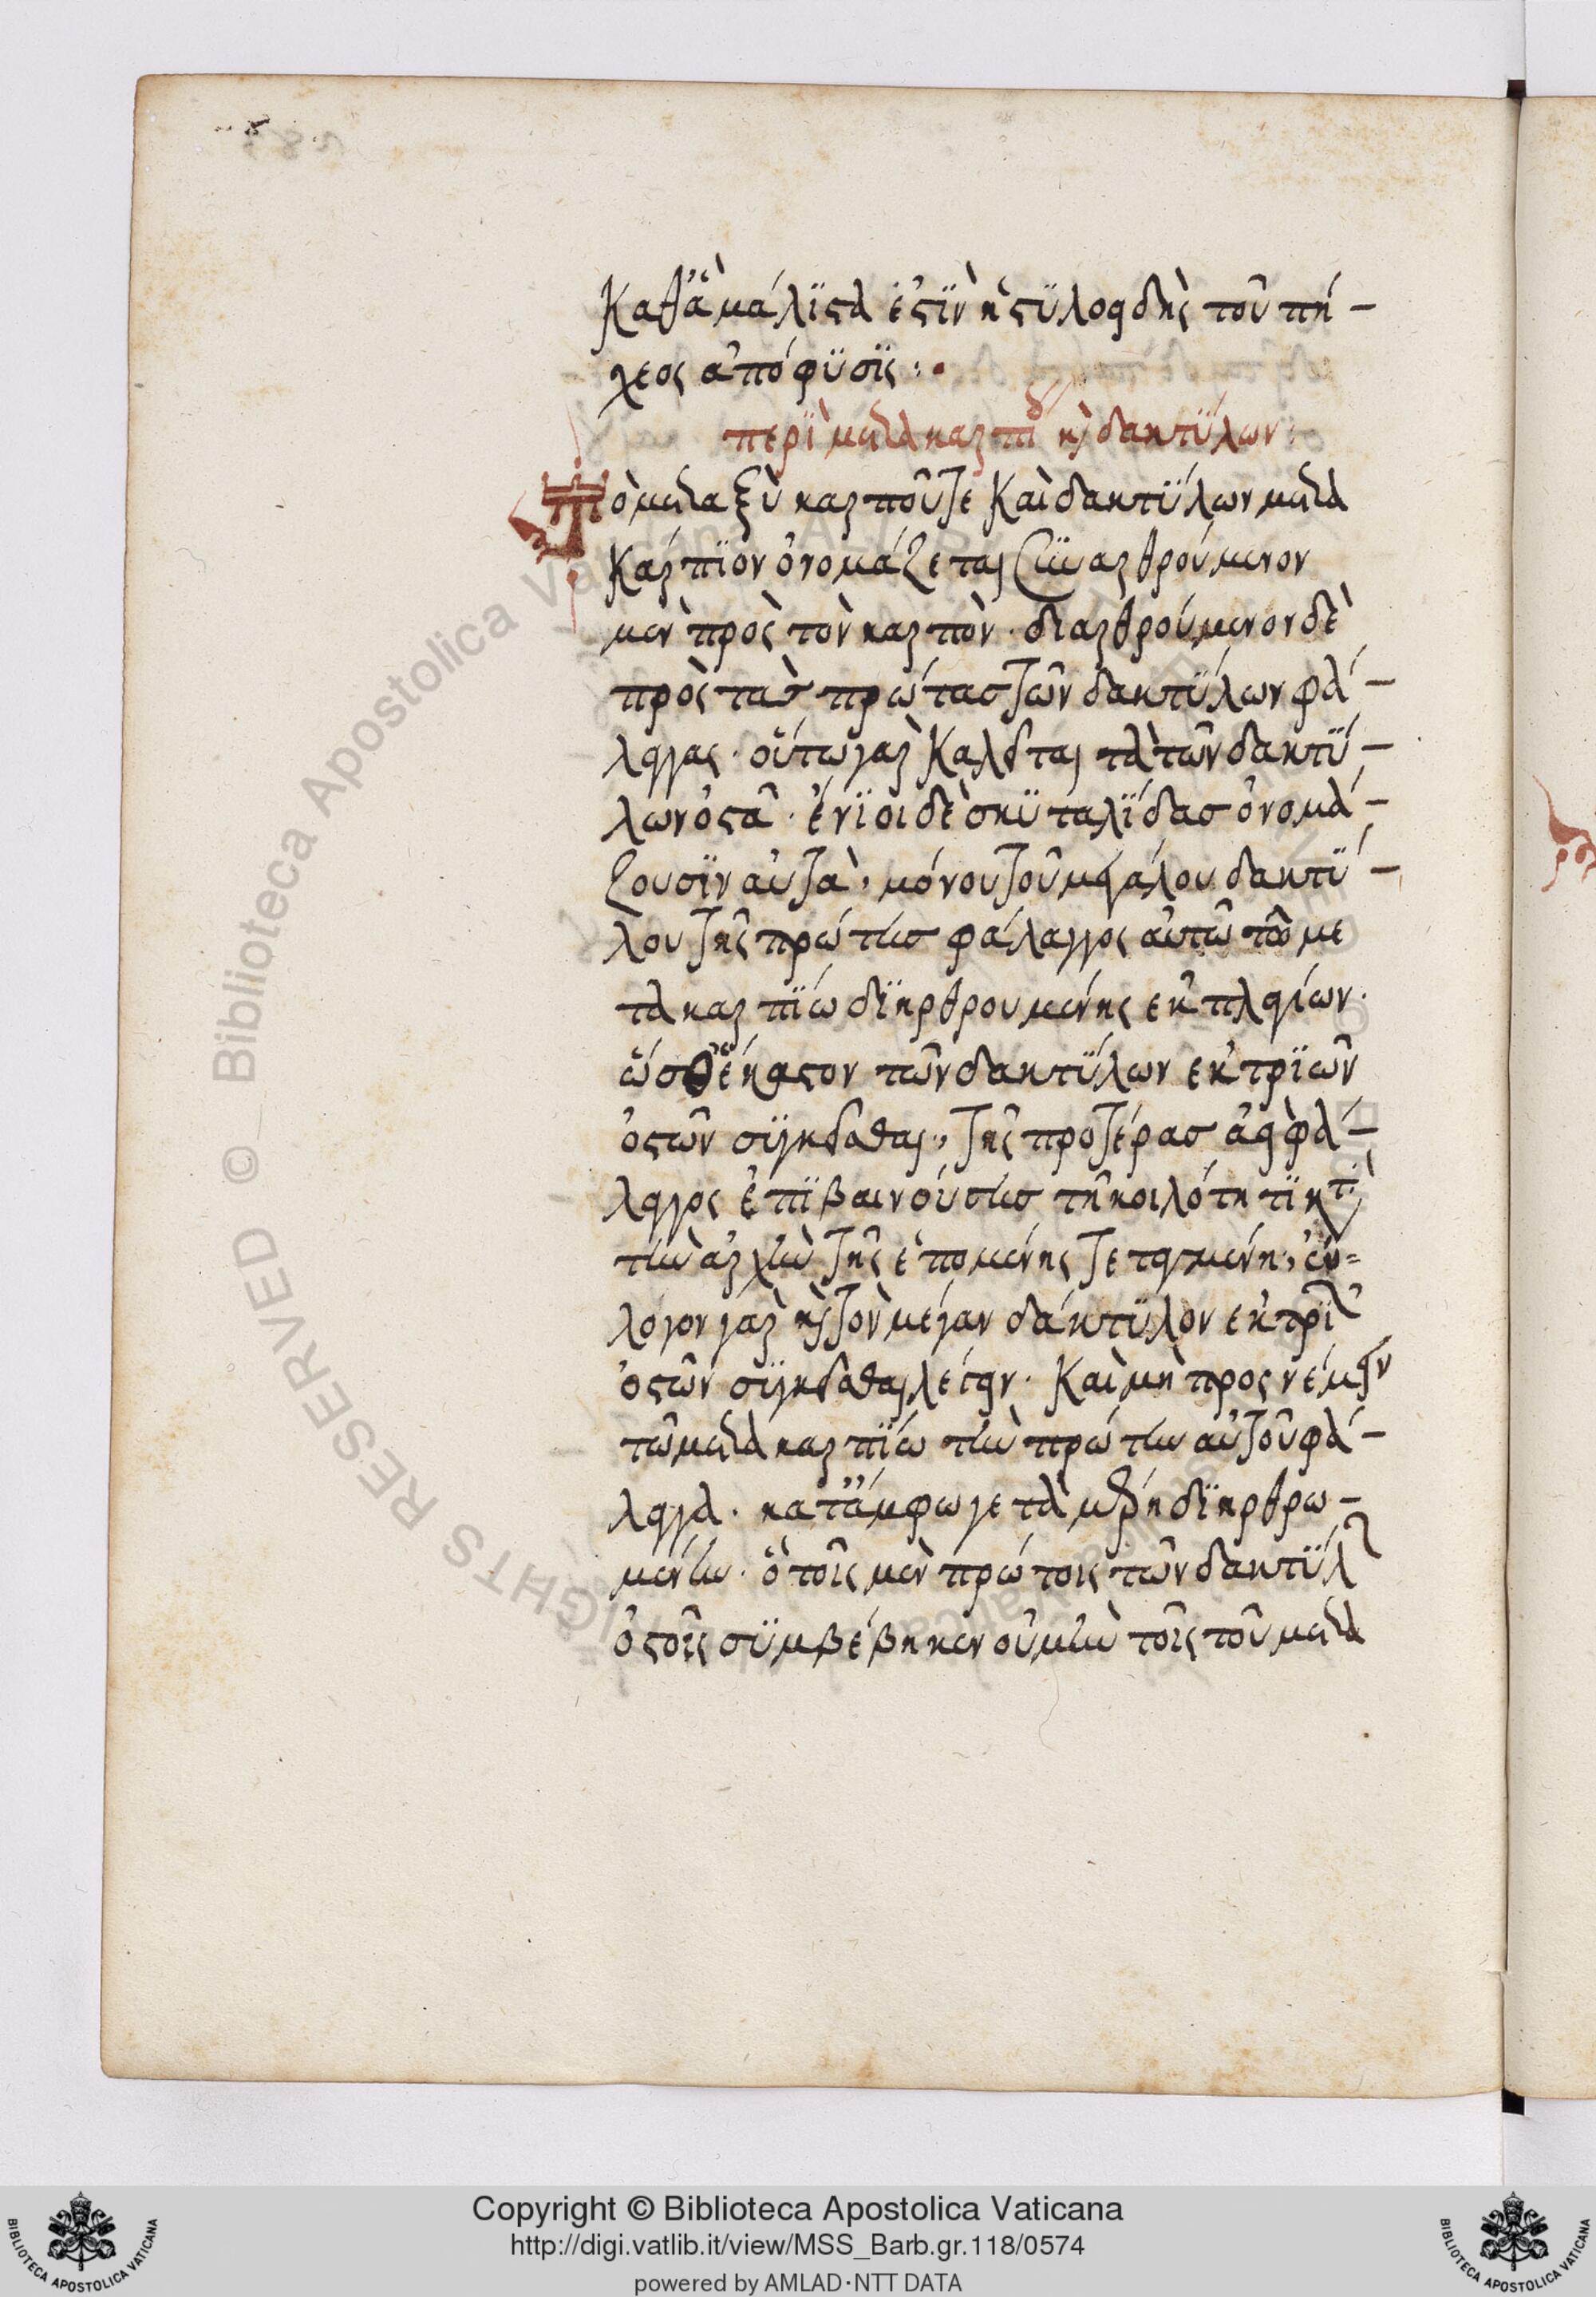 καθ' ἃ μάλϊστα ἐστϊν ἡ στϋλοειδὴς τοῦ πή-
χεος ἀπόφϋσϊς:
περϊ μετακαρπίου κ δακτϋλων:
Τὸ μεταξὺ καρποῦτε καὶ δακτϋλων μετα
καρπϊον ὀνομάζεται συναρθρούμενον
μὲν πρὸς τὸν καρπὸν· διαρθρούμενον δὲ
πρὸς τασ πρώτασ τῶν δακτϋλων φά-
λαγγας· οὕτω γὰρ καλεῖται τὰ τῶν δακτϋ-
λων ὀστᾶ· ἔνϊοι δὲ σκϋταλϊδασ ὀνομά-
ζουσϊν αὐτὰ, μόνου τοῦ μεγάλου δακτϋ-
λου τῆς πρώτησ φάλαγγος αὐτῶ τῶ με
τακαρπϊω δϊηρθρουμένης ἐκ πλαγίων·
ὥσθ' ἕκαστον τῶν δακτϋλων ἐκ τρϊῶν
ὀστῶν σϋγκεῖσθαι, τῆς προτέρασ ἀεὶ φά-
λαγγος ἐπϊβαινούσησ τῆ κοιλότητϊ κατὰ
τὴν ἀρχὴν τῆς ἑπομένης τεταγμένη, εὔ=
λογον γὰρ κ τὸν μέγαν δάκτϋλον ἐκ τρϊῶν
ὀστῶν σϋγκεῖσθαι λέγειν· καὶ μὴ προσνέμειν
τῶ μετακαρπϊω τὴν πρώτην αὐτοῦ φά-
λαγγα· κατ' ἄμφω γε τὰ μέρη δϊηρθρω-
μένην· ὃ τοῖς μὲν πρώτοις τῶν δακτϋλων
ὀστοῖς σϋμβέβηκεν οὐ μὴν τοῖς τοῦ μετα
Copyright © Biblioteca Apostolica Vaticana
http://digi.vatlib.it/view/MSS_Barb.gr.118/0574
powered by AMLAD·NTT DATA